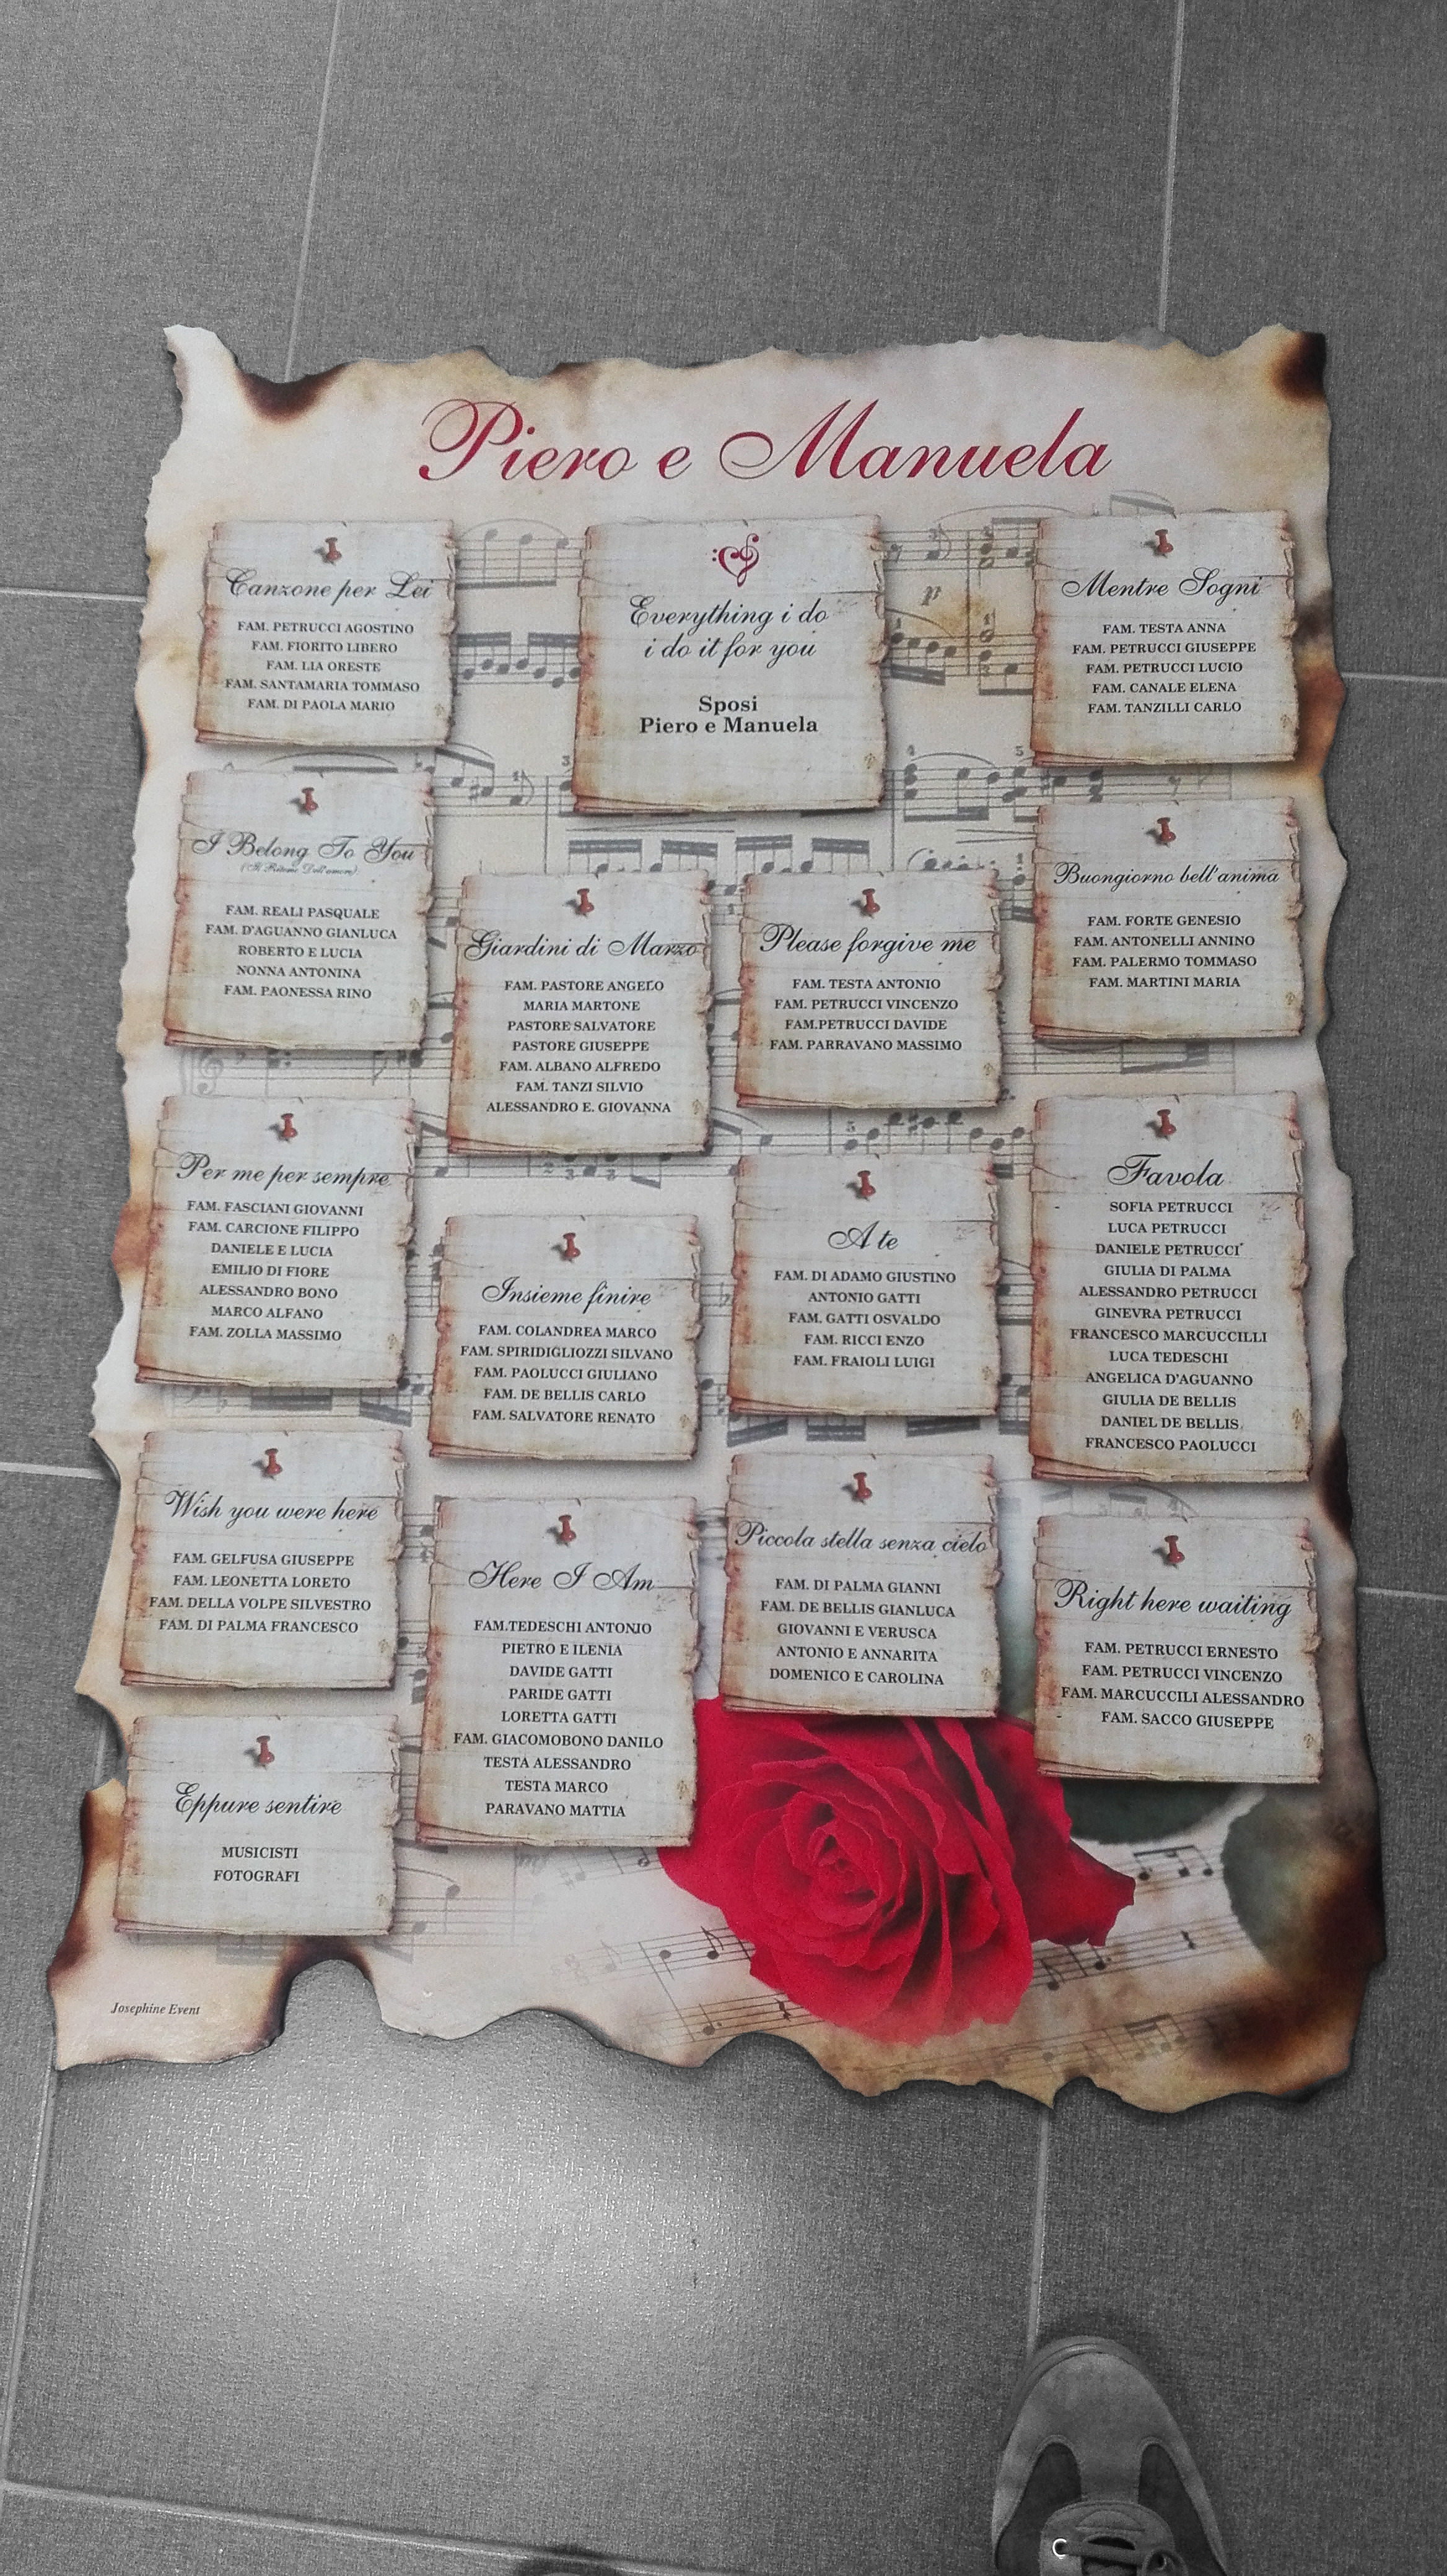 Piero e Manuela
Canzone per Lei
FAM. PETRUCCI AGOSTINO
FAM. FIORITO LIBERO
FAM. LIA ORESTE
FAM. SANTAMARIA TOMMASO
FAM. DI PAOLA MARIO
Everything i do
i do it for you
Sposi
Piero e Manuela
Mentre Sogni
FAM. TESTA ANNA
FAM. PETRUCCI GIUSEPPE
FAM. PETRUCCI LUCIO
FAM. CANALE ELENA
FAM. TANZILLI CARLO
I Belong To You
(Il Ritmo Dell'amore)
FAM. REALI PASQUALE
FAM. D'AGUANNO GIANLUCA
ROBERTO E LUCIA
NONNA ANTONINA
FAM. PAONESSA RINO
Giardini di Marzo
FAM. PASTORE ANGELO
MARIA MARTONE
PASTORE SALVATORE
PASTORE GIUSEPPE
FAM. ALBANO ALFREDO
FAM. TANZI SILVIO
ALESSANDRO E. GIOVANNA
Please forgive me
FAM. TESTA ANTONIO
FAM. PETRUCCI VINCENZO
FAM.PETRUCCI DAVIDE
FAM. PARRAVANO MASSIMO
Buongiorno bell'anima
FAM. FORTE GENESIO
FAM. ANTONELLI ANNINO
FAM. PALERMO TOMMASO
FAM. MARTINI MARIA
Per me per sempre
FAM. FASCIANI GIOVANNI
FAM. CARCIONE FILIPPO
DANIELE E LUCIA
EMILIO DI FIORE
ALESSANDRO BONO
MARCO ALFANO
FAM. ZOLLA MASSIMO
Insieme finire
FAM. COLANDREA MARCO
FAM. SPIRIDIGLIOZZI SILVANO
FAM. PAOLUCCI GIULIANO
FAM. DE BELLIS CARLO
FAM. SALVATORE RENATO
A te
FAM. DI ADAMO GIUSTINO
ANTONIO GATTI
FAM. GATTI OSVALDO
FAM. RICCI ENZO
FAM. FRAIOLI LUIGI
Favola
SOFIA PETRUCCI
LUCA PETRUCCI
DANIELE PETRUCCI
GIULIA DI PALMA
ALESSANDRO PETRUCCI
GINEVRA PETRUCCI
FRANCESCO MARCUCCILLI
LUCA TEDESCHI
ANGELICA D'AGUANNO
GIULIA DE BELLIS
DANIEL DE BELLIS
FRANCESCO PAOLUCCI
Wish you were here
FAM. GELFUSA GIUSEPPE
FAM. LEONETTA LORETO
FAM. DELLA VOLPE SILVESTRO
FAM. DI PALMA FRANCESCO
Here I Am
FAM.TEDESCHI ANTONIO
PIETRO E ILENIA
DAVIDE GATTI
PARIDE GATTI
LORETTA GATTI
FAM. GIACOMOBONO DANILO
TESTA ALESSANDRO
TESTA MARCO
PARAVANO MATTIA
Piccola stella senza cielo
FAM. DI PALMA GIANNI
FAM. DE BELLIS GIANLUCA
GIOVANNI E VERUSCA
ANTONIO E ANNARITA
DOMENICO E CAROLINA
Right here waiting
FAM. PETRUCCI ERNESTO
FAM. PETRUCCI VINCENZO
FAM. MARCUCCILI ALESSANDRO
FAM. SACCO GIUSEPPE
Eppure sentire
MUSICISTI
FOTOGRAFI
Josephine Event